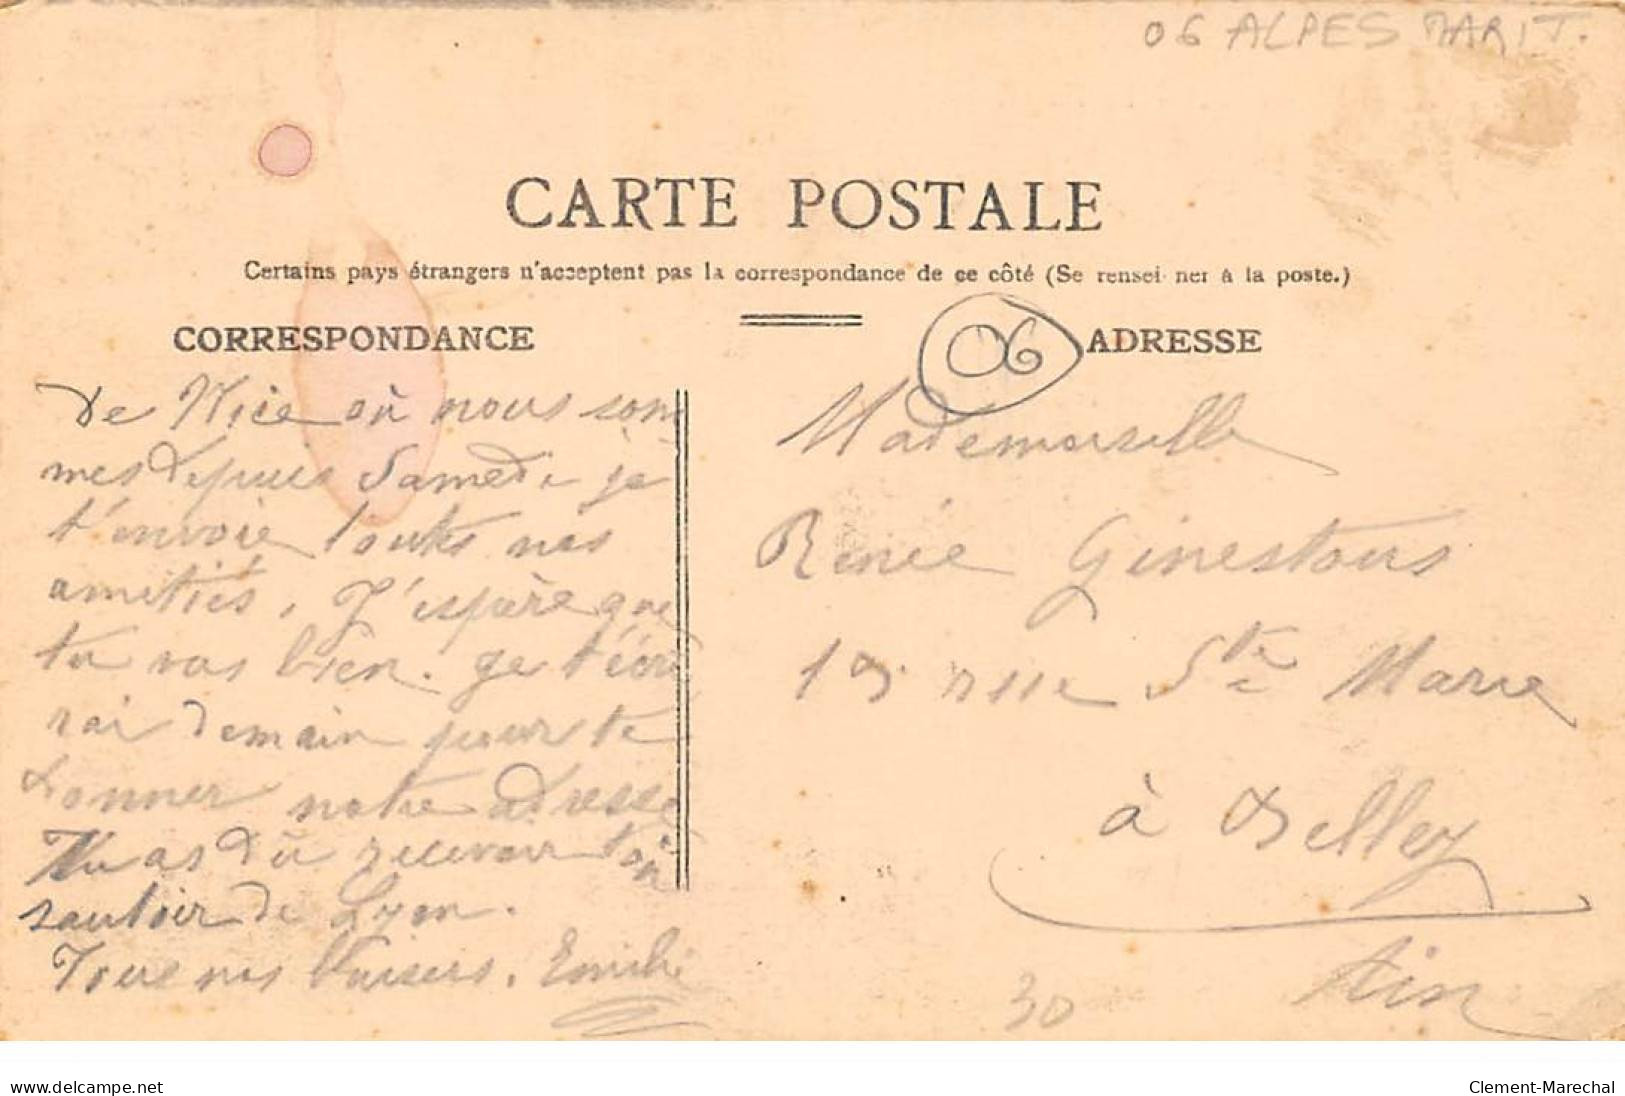 06 ALPES MARIT.
CARTE POSTALE
Certains pays étrangers n'acceptent pas la correspondance de ce côté (Se rensei ner à la poste.)
CORRESPONDANCE
De Nice où nous som
mes depuis Samedi je
t'envoie toutes nos
amitiés. J'espère que
tu vas bien. Je t'écri
rai demain pour te
donner notre adresse
Tu as dû recevoir ton
sautoir de Lyon.
Tous nos baisers. Emilie
06
ADRESSE
Mademoiselle
Renée Ginestous
15 rue Ste Marie
à Belley
Ain
30
www.delcampe.net
Clement-Marechal